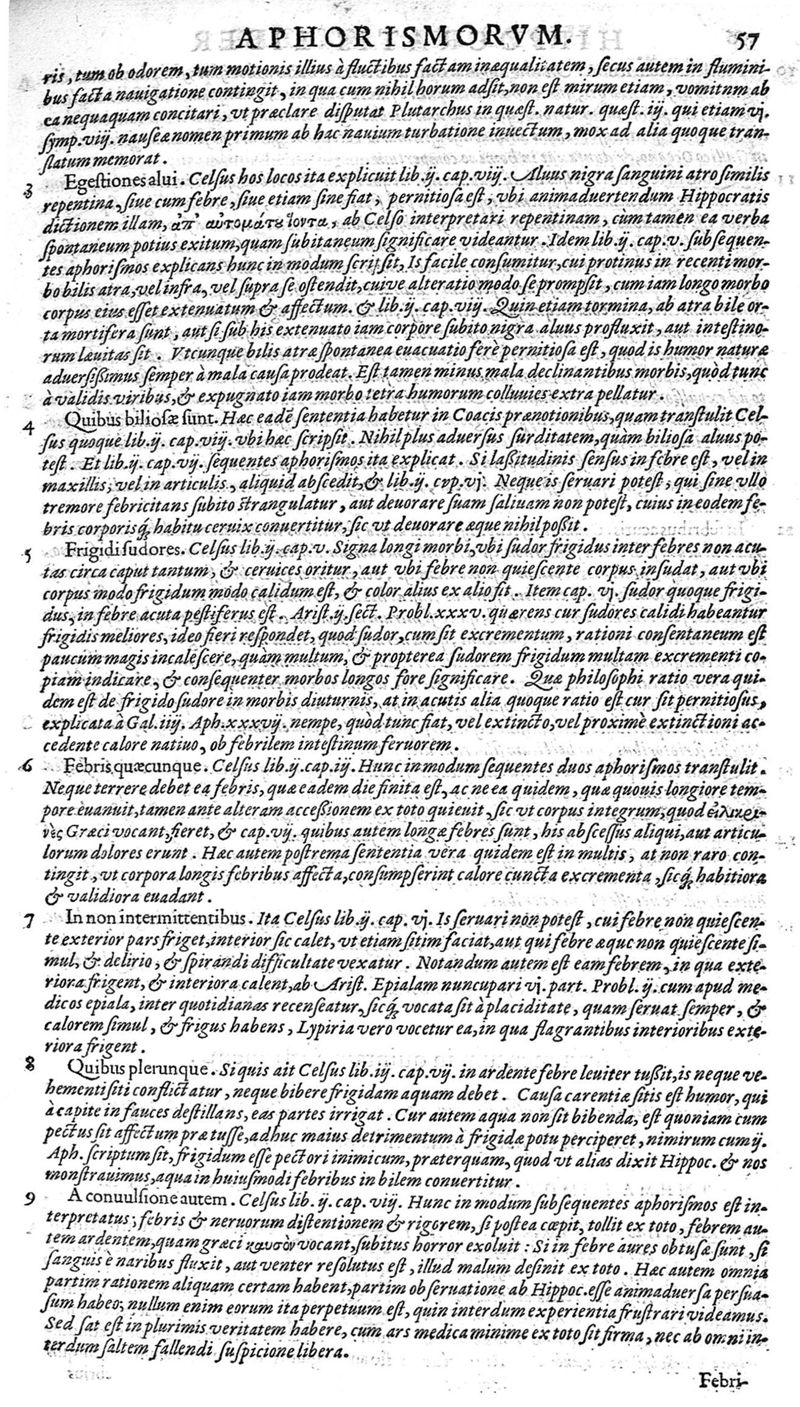 APHORISMORVM. 57
ris, tum ob odorem, tum motionis illius à fluctibus factam inæqualitatem, secus autem in flumini-
bus facta nauigatione contingit, in qua cum nihil horum adsit, non est mirum etiam, vomitum ab
ea nequaquam concitari, vt præclare disputat Plutarchus in quæst. natur. quæst. iij. qui etiam vj.
symp. viij. nauseæ nomen primum ab hac nauium turbatione inuectum, mox ad alia quoque tran-
slatum memorat.
3 Egestiones alui. Celsus hos locos ita explicuit lib. ij. cap. viij. Aluus nigra sanguini atro similis
repentina, siue cum febre, siue etiam sine fiat, pernitiosa est, vbi animaduertendum Hippocratis
dictionem illam, ἀπ' αὐτομάτου ἰόντα, ab Celso interpretari repentinam, cùm tamen ea verba
spontaneum potius exitum, quam subitaneum significare videantur. Idem lib. ij. cap. v. subsequen-
tes aphorismos explicans hunc in modum scripsit, Is facile consumitur, cui protinus in recenti mor-
bo bilis atra, vel infra, vel supra se ostendit, cuive alteratio modo se prompsit, cum iam longo morbo
corpus eius esset extenuatum & affectum. & lib. ij. cap. viij. Quin etiam tormina, ab atra bile or-
ta mortifera sunt, aut si sub his extenuato iam corpore subito nigra aluus profluxit, aut intestino-
rum læuitas sit. Vtcunque bilis atræ spontanea euacuatio ferè pernitiosa est, quod is humor naturæ
aduersissimus semper à mala causa prodeat. Est tamen minus mala declinantibus morbis, quòd tunc
à validis viribus, & expugnato iam morbo tetra humorum colluuies extra pellatur.
4 Quibus biliosæ sunt. Hæc eadē sententia habetur in Coacis prænotionibus, quam transtulit Cel-
sus quoque lib. ij. cap. viij. vbi hæc scripsit. Nihil plus aduersus surditatem, quàm biliosa aluus po-
test. Et lib. ij. cap. vij. sequentes aphorismos ita explicat. Si lassitudinis sensus in febre est, vel in
maxillis, vel in articulis, aliquid abscedit, & lib. ij. cvp. vj. Neque is seruari potest, qui sine vllo
tremore febricitans subito strangulatur, aut deuorare suam saliuam non potest, cuius in eodem fe-
bris corporisq́; habitu ceruix conuertitur, sic vt deuorare æque nihil possit.
5 Frigidi sudores. Celsus lib. ij. cap. v. Signa longi morbi, vbi sudor frigidus inter febres non acu-
tas circa caput tantum, & ceruices oritur, aut vbi febre non quiescente corpus insudat, aut vbi
corpus modo frigidum modo calidum est, & color alius ex alio sit. Item cap. vj. sudor quoque frigi-
dus, in febre acuta pestiferus est. Arist. ij. sect. Probl. xxxv. quærens cur sudores calidi habeantur
frigidis meliores, ideo fieri respondet, quod sudor, cum sit excrementum, rationi consentaneum est
paucum magis incalescere, quàm multum, & propterea sudorem frigidum multam excrementi co-
piam indicare, & consequenter morbos longos fore significare. Quæ philosophi ratio vera qui-
dem est de frigido sudore in morbis diuturnis, at in acutis alia quoque ratio est cur sit pernitiosus,
explicata à Gal. iiij. Aph. xxxvij. nempe, quòd tunc fiat, vel extincto, vel proximè extinctioni ac-
cedente calore natiuo, ob febrilem intestinum feruorem.
6 Febris quæcunque. Celsus lib. ij. cap. iij. Hunc in modum sequentes duos aphorismos transtulit.
Neque terrere debet ea febris, quæ eadem die finita est, ac ne ea quidem, quæ quouis longiore tem-
pore euanuit, tamen ante alteram accessionem ex toto quieuit, sic vt corpus integrum, quod εἰλικρι-
νὲς Græci vocant, fieret, & cap. vij. quibus autem longæ febres sunt, his abscessus aliqui, aut articu-
lorum dolores erunt. Hæc autem postrema sententia vera quidem est in multis, at non raro con-
tingit, vt corpora longis febribus affecta, consumpserint calore cuncta excrementa, sicq́; habitiora
& validiora euadant.
7 In non intermittentibus. Ita Celsus lib. ij. cap. vj. Is seruari non potest, cui febre non quiescen-
te exterior pars friget, interior sic calet, vt etiam sitim faciat, aut qui febre æque non quiescente si-
mul, & delirio, & spirandi difficultate vexatur. Notandum autem est eam febrem, in qua exte-
riora frigent, & interiora calent, ab Arist. Epialam nuncupari vj. part. Probl. ij. cum apud me-
dicos epiala, inter quotidianas recenseatur, sicq́; vocata sit à placiditate, quam seruat semper, &
calorem simul, & frigus habens, Lypiria vero vocetur ea, in qua flagrantibus interioribus exte-
riora frigent.
8 Quibus plerunque. Si quis ait Celsus lib. iij. cap. vij. in ardente febre leuiter tussit, is neque ve-
hementi siti conflictatur, neque bibere frigidam aquam debet. Causa carentiæ sitis est humor, qui
à capite in fauces destillans, eas partes irrigat. Cur autem aqua non sit bibenda, est quoniam cum
pectus sit affectum præ tusse, adhuc maius detrimentum à frigidæ potu perciperet, nimirum cum ij.
Aph. scriptum sit, frigidum esse pectori inimicum, præterquam, quod vt alias dixit Hippoc. & nos
monstrauimus, aqua in huiusmodi febribus in bilem conuertitur.
9 A conuulsione autem. Celsus lib. ij. cap. viij. Hunc in modum subsequentes aphorismos est in-
terpretatus, febris & neruorum distentionem & rigorem, si postea cœpit, tollit ex toto, febrem au-
tem ardentem, quam græci καυσὸν vocant, subitus horror exoluit: Si in febre aures obtusæ sunt, si
sanguis è naribus fluxit, aut venter resolutus est, illud malum desinit ex toto. Hæc autem omnia
partim rationem aliquam certam habent, partim obseruatione ab Hippoc. esse animaduersa persua-
sum habeo, nullum enim eorum ita perpetuum est, quin interdum experientia frustrari videamus.
Sed sat est in plurimis veritatem habere, cum ars medica minime ex toto sit firma, nec ab omni in-
terdum saltem fallendi suspicione libera.
Febri-